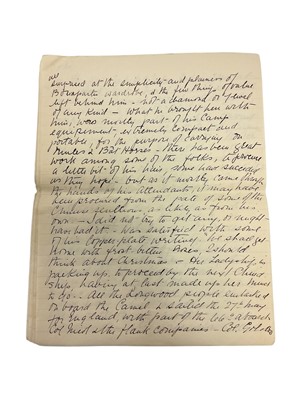 all
surprised at the simplicity and plainness of
Bonaparte's wardrobe, & the few things of value
left behind him — not a diamond or jewel
of any kind — What he brought here with
him, was merely part of his Camp
equipment, extremely compact and
portable, for the purpose of carrying on
Mules & Bat Horses — There has been great
work among some of the folks, to procure
a little bit of his hair, some have succeeded
as they hope, but as it mostly came through
the hands of his attendants, it may have
been procured from the
as like as from his
own — I did not try to get any, or might
have had it — Was satisfied with some
of his Copper plate, we shall get
home with great
think about Christmas — Her Ladyship is
packing up, to proceed by the next China
ship, having at last made up her mind
to go — All the Longwood people embarked
on board the Camel & sailed the 27th May
for England, with part of the 66th aboard
Col. & the flank companies — Col.